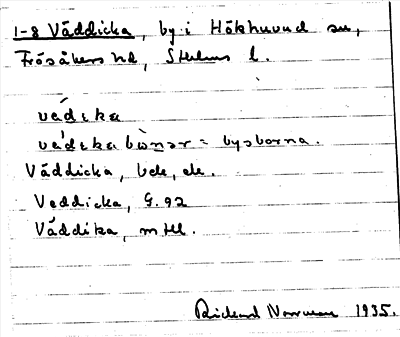 1-8 Väddicka, by i Hökhuvud sn,
Frösåkers hd, Sthlms l.
vádıka
vádıka bònǝr = bysborna.
Väddicka, bde, dk.
Veddicka, G. 92
Väddika, mtl.
Rickard Norrman 1935.